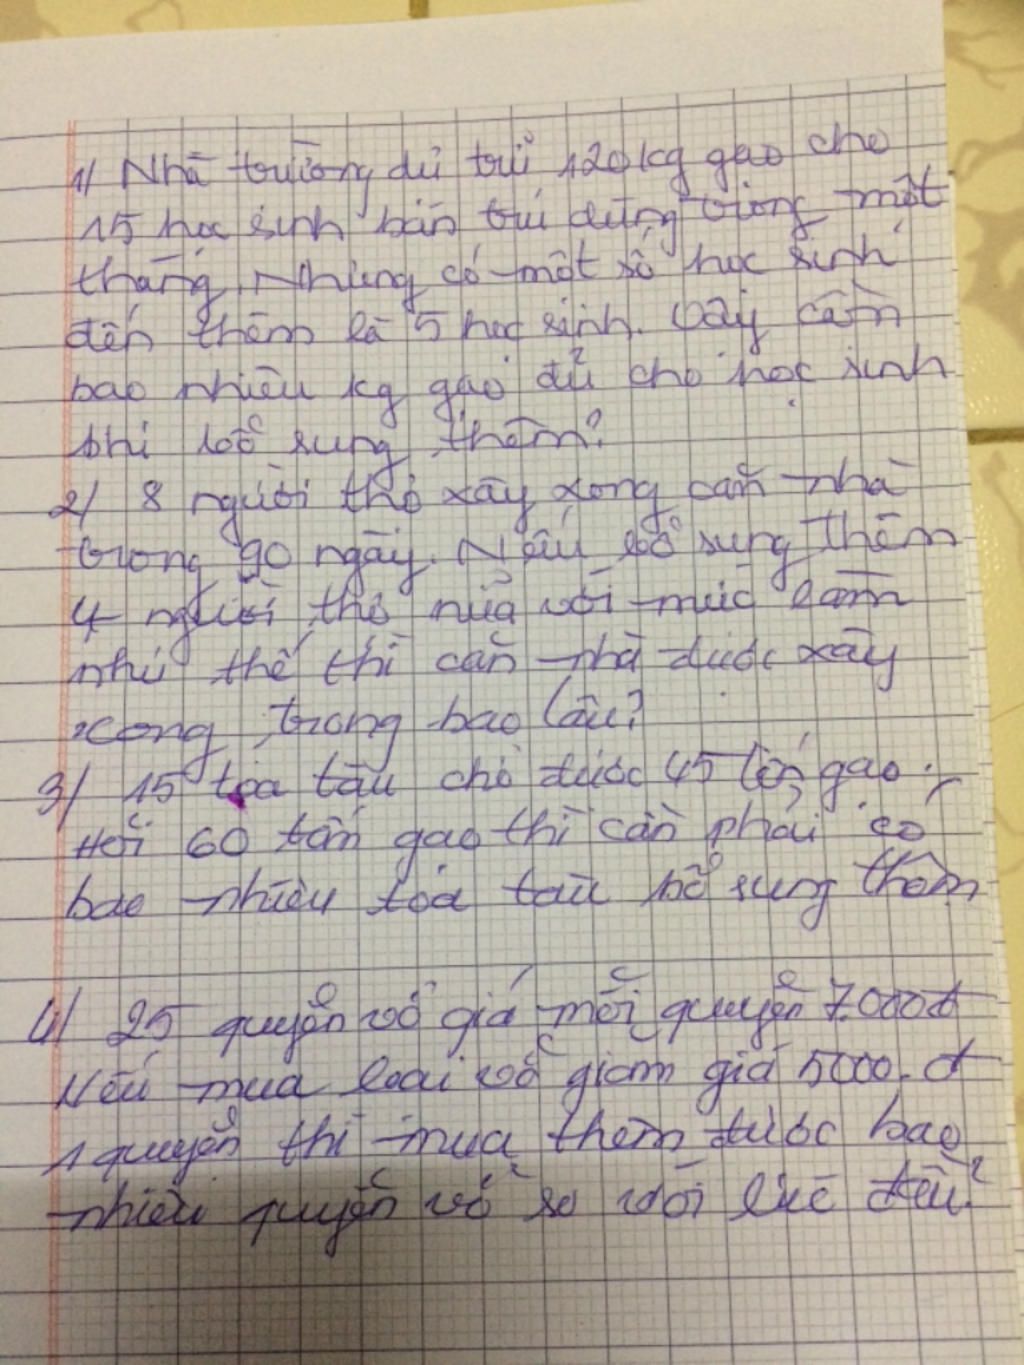 1/ Nhà trường dự trữ 120kg gạo cho
15 học sinh bán trú dùng trong một
tháng. Nhưng có một số học sinh
đến thêm là 5 học sinh. Vậy cần
bao nhiêu kg gạo đủ cho học sinh
khi bổ sung thêm?
2/ 8 người thợ xây xong căn nhà
trong 90 ngày. Nếu bổ sung thêm
4 người thợ nữa với mức làm
như thế thì căn nhà được xây
xong trong bao lâu?
3/ 15 toa tàu chở được 45 tấn gạo.
Hỏi 60 tấn gạo thì cần phải có
bao nhiêu toa tàu bổ sung thêm
4/ 25 quyển vở giá mỗi quyển 7.000đ
Nếu mua loại vở giảm giá 5000.đ
1 quyển thì mua thêm được bao
nhiêu quyển vở so với lúc đầu?